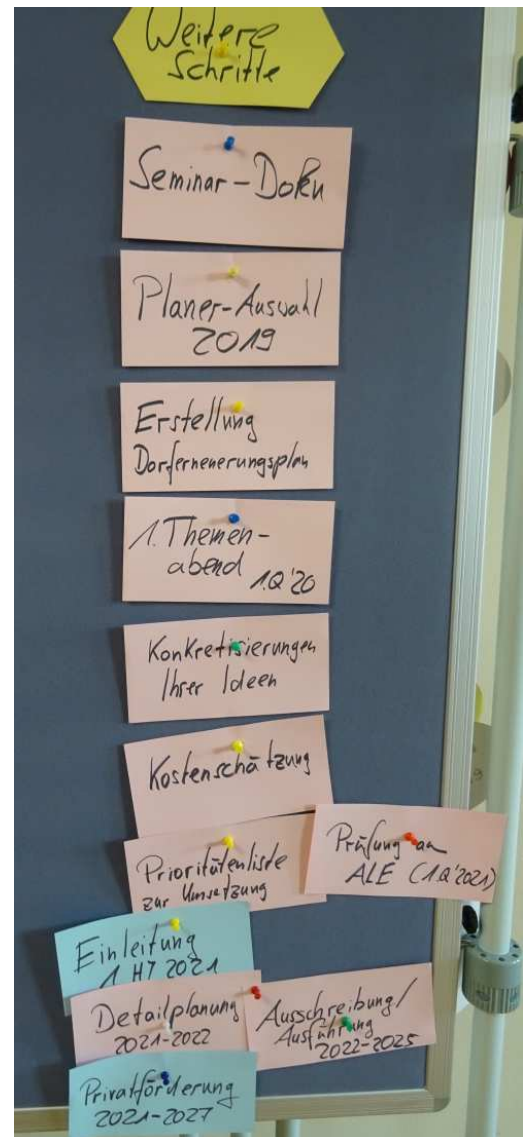 Weitere
Schritte
Seminar-Doku
Planer-Auswahl
2019
Erstellung
Dorferneuerungsplan
1. Themen-
abend 1.Q'20
Konkretisierungen
Ihrer Ideen
Kostenschätzung
Prioritätenliste
zur Umsetzung
Prüfung an
ALE (1.Q'2021)
Einleitung
1. HJ 2021
Detailplanung
2021-2022
Ausschreibung/
Ausführung
2022-2025
Privatförderung
2021-2027